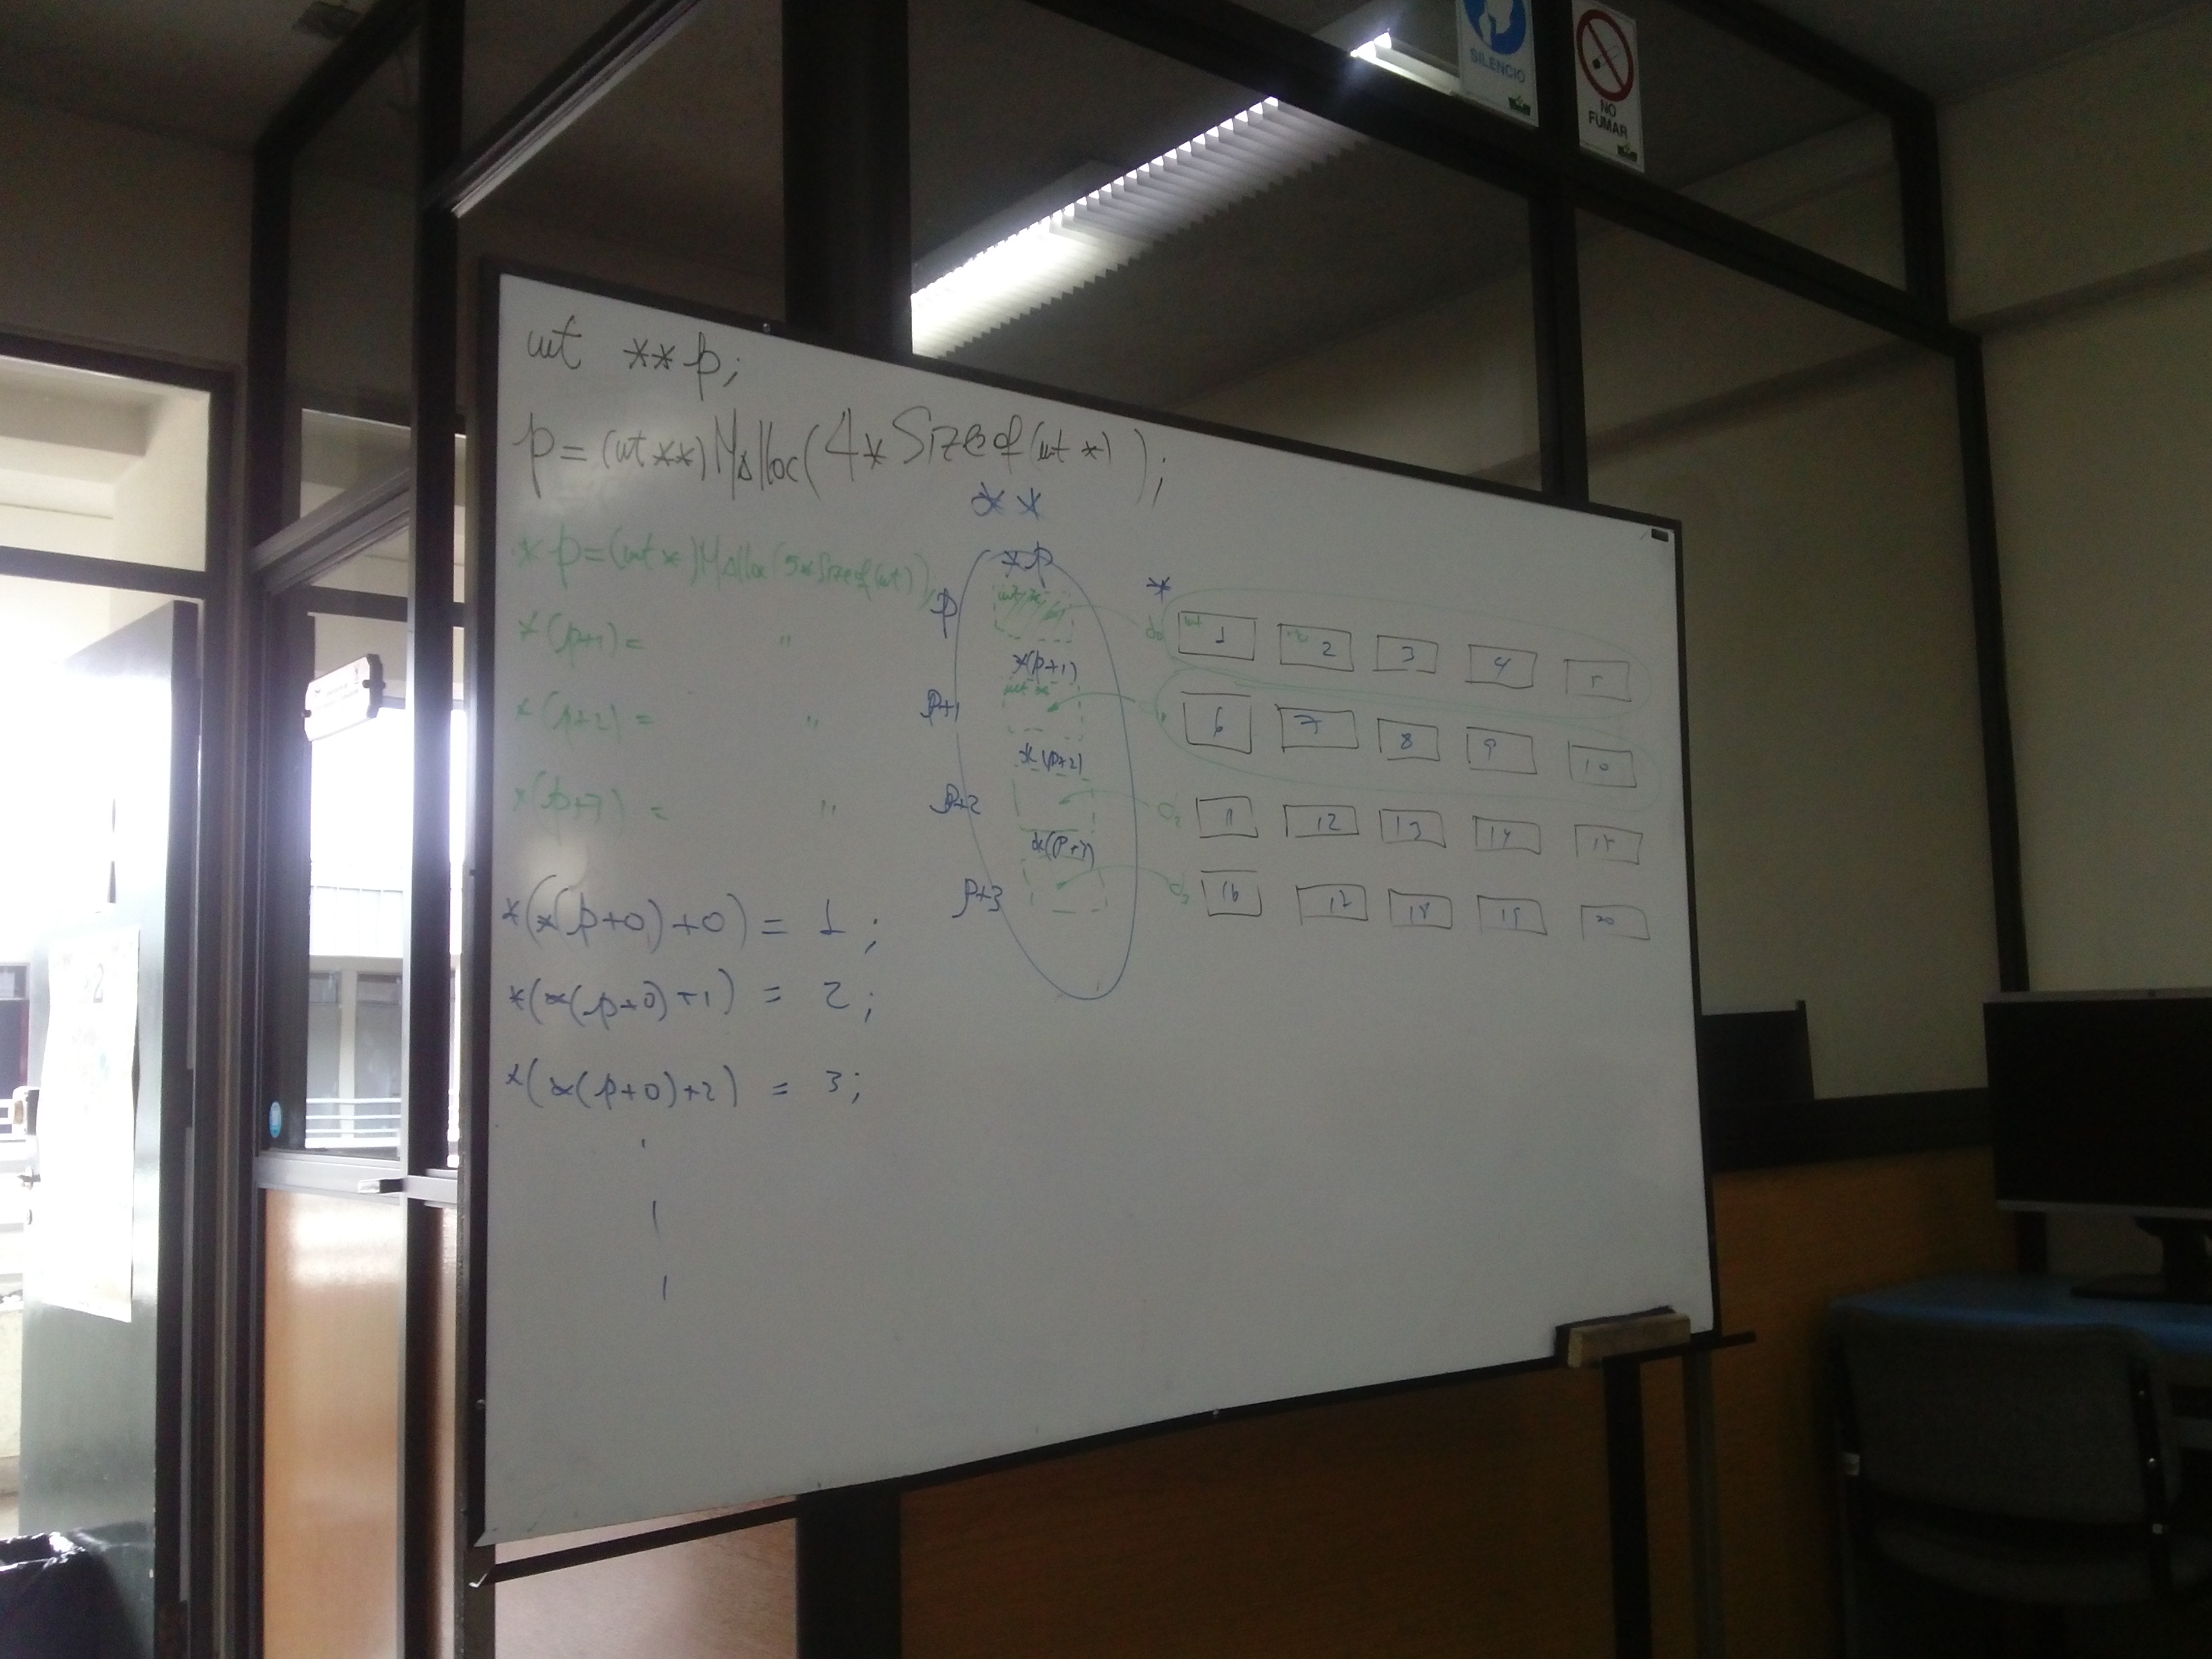 SILENCIO
NO
FUMAR
int **p;
p=(int**)Malloc(4*Sizeof(int*));
**
*p=(int*)Malloc(5*Sizeof(int));
*(p+1)= "
*(p+2)= "
*(p+3)= "
*(*(p+0)+0) = 1;
*(*(p+0)+1) = 2;
*(*(p+0)+2) = 3;
*p
p
*(p+1)
int *
p+1
*(p+2)
p+2
*(p+3)
p+3
*
d0 int 1 2 3 4 5
6 7 8 9 10
d2 11 12 13 14 15
d3 16 17 18 19 20